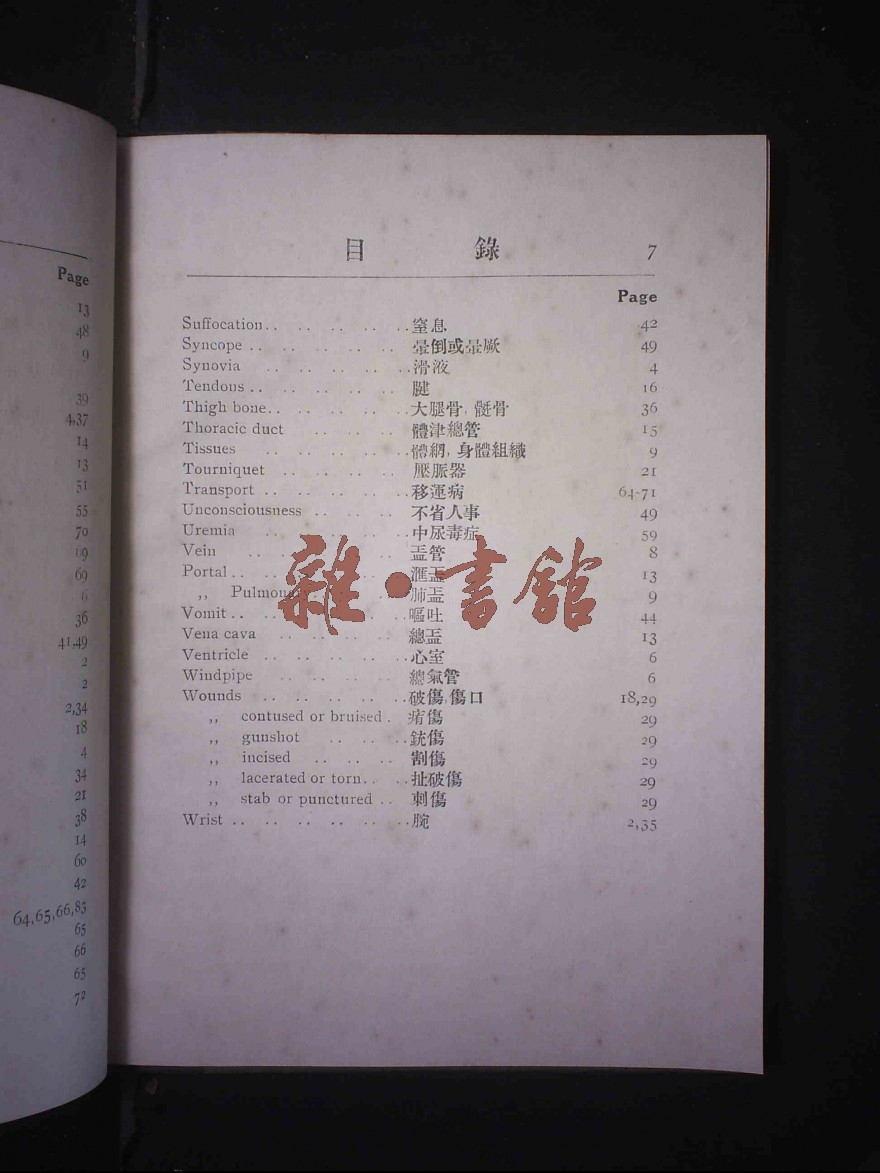 Page
13
48
9
39
4,37
14
13
51
55
70
69
69
6
36
41,49
2
2
2,34
18
4
34
21
38
14
60
42
64,65,66,83
65
66
65
72
目 錄 7
Page
Suffocation.. .. .. .. .. ..窒息 42
Syncope .. .. .. .. .. ..暈倒或暈厥 49
Synovia .. .. .. .. ..滑液 4
Tendons .. .. .. .. .. .. 腱 16
Thigh bone.. .. .. .. .. ..大腿骨, 髀骨 36
Thoracic duct .. .. .. ..體津總管 15
Tissues .. .. .. .. ..體網, 身體組織 9
Tourniquet .. .. .. .. .. 壓脈器 21
Transport .. .. .. .. .. ..移運病 64-71
Unconsciousness .. .. .. ..不省人事 49
Uremia .. .. .. .. ..中尿毒症 59
Vein .. .. .. .. .. ..衁管 8
Portal .. .. .. .. .. ..滙衁 13
,, Pulmonary .. .. ..肺衁 9
Vomit .. .. .. .. .. ..嘔吐 44
Vena cava .. .. .. .. ..總衁 13
Ventricle .. .. .. .. .. ..心室 6
Windpipe .. .. .. .. ..總氣管 6
Wounds .. .. .. .. ..破傷, 傷口 18,29
,, contused or bruised . 瘀傷 29
,, gunshot .. .. ..銃傷 29
,, incised .. .. .. 割傷 29
,, lacerated or torn.. ..扯破傷 29
,, stab or punctured .. 刺傷 29
Wrist .. .. .. .. .. ..腕 2,35
雜·書館